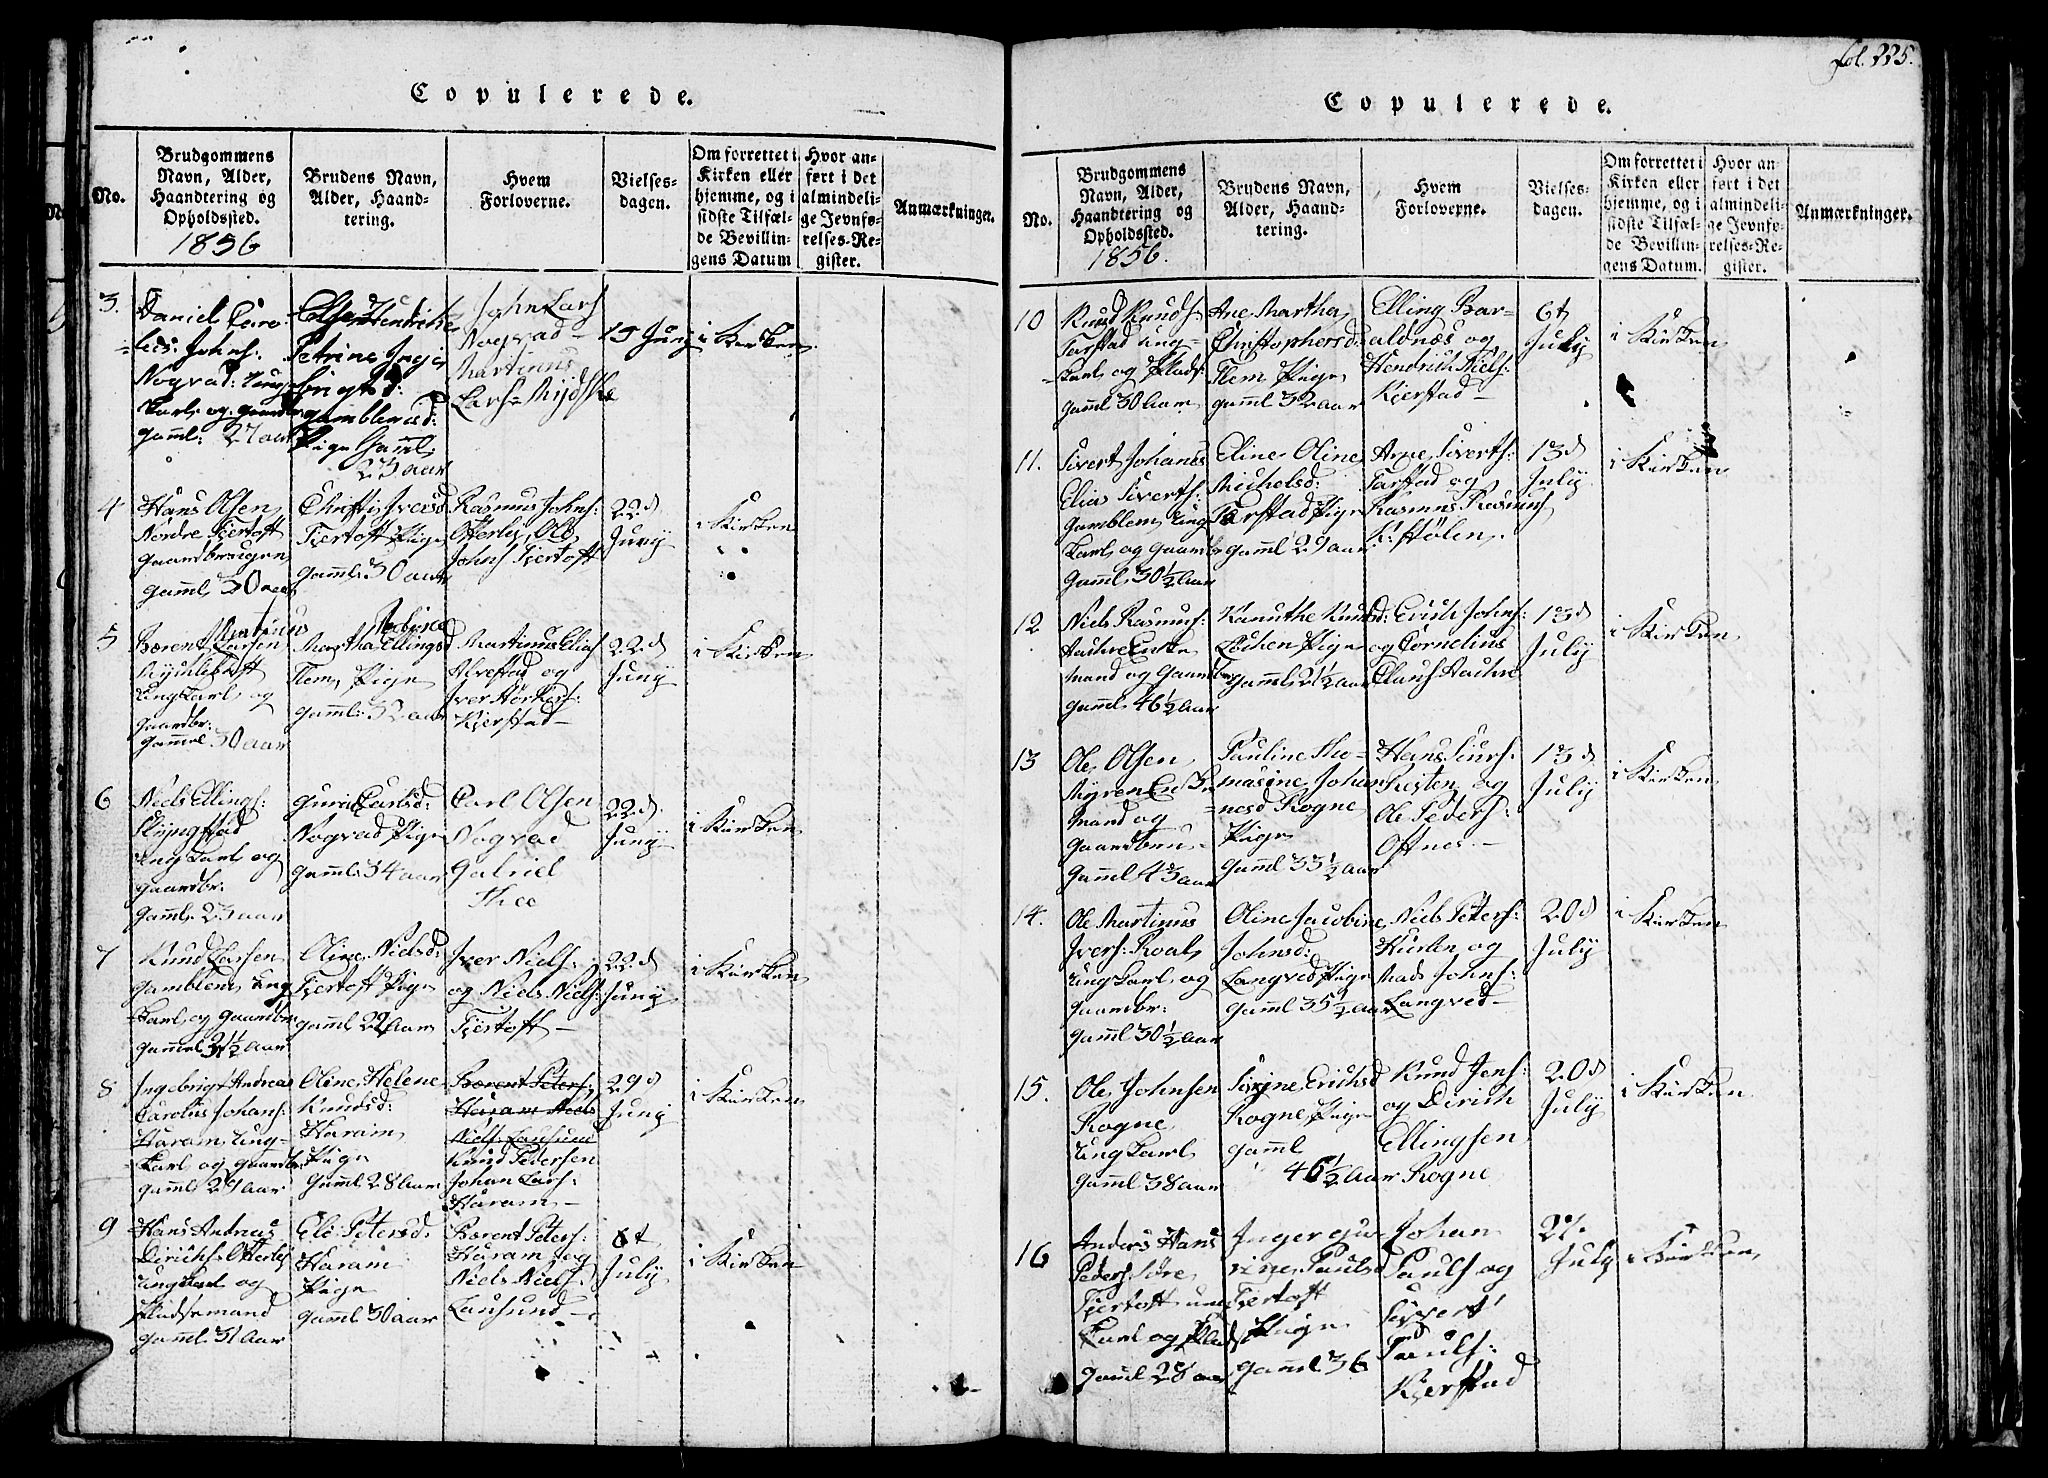 fol. 225.
Copulerede.
No.
Brudgommens
Navn, Alder,
Haandtering og
Opholdssted.
1856
Brudens Navn,
Alder, Haand-
tering.
Hvem
Forloverne.
Vielses-
dagen.
Om forrettet i
Kirken eller
hjemme, og i
sidste Tilfæl-
de Bevillin-
gens Datum
Hvor an-
ført i det
almindeli-
ge Jevnfø-
relses-Re-
gister.
Anmærkninger.
3.
Daniel Caro-
Johns:
Nogvad: Ung-
Karl og Gaardbr
gaml: 27 aar
Else Hendrikke
Petrine Inge-
brigtsd:
Gamblemsd:
Pige Gaml.
23 aar
John Lars
Nogvad -
Martinus
Lars=
15 Juny
i Kirken
4
Hans Olsen
Nordre Fjertoft
Gaardbrugen
gaml. 30 aar
Christi Iversd
Fjertoft Pige
gaml. 30 aar
Rasmus Johns:
Otterlej, Ole
Johns Fjertoft
22d
Juny
i Kirken
5
Martinus
Berent Larsen
Ung Karl og
Gaardbr:
gammel 30 aar
Martha Ellingsd
Flem, Pige
gaml: 32 aar
Martinus Elias
Alvestad og
Iver
Kjerstad -
22d
Juny
i Kirken
6
Niels Ellings:
Slyngstad
Ung Karl og
Gaardbr:
gaml. 23 aar
Guri Carlsd:
Nogvad Pige
gaml. 34 aar
Carl Olsen
Nogvad
Gabriel
22d.
Juny
i Kirken
7
Knud Larsen
Gamblem Ung
Karl og Gaardbr
Oline Nielsd:
Fjertoft Pige
gaml 22 Aar
Iver Niels:
og Niels Niels:
Fjertoft -
22d
Juny
i Kirken
8
Ingebrigt Andreas
Carolus Johans:
Haram, Ung-
Karl og Gaardbr
gaml 29 aar
Oline Helene
Knudsd:
Haram
Pige
Gaml 28 Aar
Berent Peters:
Haram Niels
Niels. Lausund
Knud Pedersen
Johan Lars:
Haram -
29d
Juny
i Kirken
9
Hans Andreas
Dirichs: Otterlej
Ung Karl og
Pladsemand
gaml. 31 Aar
Ele Petersd:
Haram
Pige
gaml 30 aar
Berent Peters:
Haram og
Niels Niels:
Lausund -
6t
July
i Kirken
Copulerede.
No.
Brudgommens
Navn, Alder,
Haandtering og
Opholdssted.
1856.
Brudens Navn,
Alder, Haand-
tering.
Hvem
Forloverne.
Vielses-
dagen.
Om forrettet i
Kirken eller
hjemme, og i
sidste Tilfæl-
de Bevillin-
gens Datum.
Hvor an-
ført i det
almindeli-
ge Jevnfø-
relses-Re-
gister.
Anmærkninger.
10
Knud Knuds
Tarstad Ung-
Karl og Plads:
gaml 30 Aar
Ane Martha
Christophersd:
Flem Pige
gaml 32 aar
Elling Bar-
aldnæs og
Hendrich Niels:
Kjerstad -
6t
July
i Kirken
11.
Sivert Johanes
Elias Siverts:
Gamblem, Ung
Karl og Gaardbr
Gaml. 30 1/2 Aar
Eline Oline
Micholsd:
Tarstad Pige
gaml 29 aar
Arne Siverts:
Tarstad og
Rasmus Rasmus
Kistølen.
13d
July
i Kirken
12
Niels Rasmus:
Hachre Enke
Mand og Gaardbr
gaml. 46 1/2 Aar
Kanuthe Knudsd:
Løchen Pige
gaml. 21 1/2 aar
Erich Johns:
og Cornelius
Claus Hachre
13d
July
i Kirken
13
Ole Olsen
Myren Enke
Mand og
Gaardbru-
gaml 43 aar
Pauline Tho-
masine Johan-
nesd Rogne
Pige
gaml 33 1/2 aar
Hans Siurs:
Resten og
Ole Peders:
Oftnes. -
13d
July
i Kirken
14.
Ole Martinus
Ivers: Roal
Ung Karl og
Gaardbr:
gaml 30 1/2 Aar
Oline Jacobine
Johnsd:
Langved Pige
gaml 35 1/2 Aar
Niels Peters:
Hurlen og
Mads Johns:
Langved -
20d
July
i Kirken
15.
Ole Johnsen
Rogne
Ung Karl
gaml 38 aar
Sirine Erichsd
Rogne, Pige
gaml
46 1/2 Aar
Knud Jens:
og Dirich
Ellingsen
Rogne
20d
July
i Kirken
16
Anders Hans
Peders: Søre
Fjertoft ung
Karl og Plads
gaml 28 aar
Ingergu-
rine Paulsd
Fjertoft
Pige
gaml 36
Johan
Pauls og
Sivert
Pauls:
Kjerstad
27.
July
i Kirken